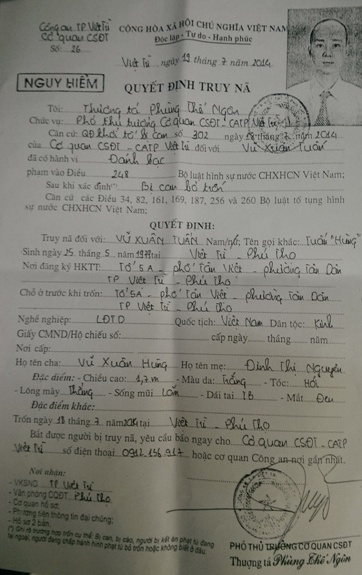 Công an TP Việt Trì
CỘNG HÒA XÃ HỘI CHỦ NGHĨA VIỆT NAM
Cơ quan CSĐT
Độc lập - Tự do - Hạnh phúc
Số: 26
Việt Trì, ngày 19 tháng 7 năm 2014
NGUY HIỂM
QUYẾT ĐỊNH TRUY NÃ
Tôi: Thượng tá Phùng Thế Ngân
Chức vụ: Phó thủ trưởng Cơ quan CSĐT - CATP Việt Trì
Căn cứ: QĐ khởi tố bị can số 302 ngày 7 năm 2014
của Cơ quan CSĐT - CATP Việt Trì đối với Vũ Xuân Tuấn
đã có hành vi Đánh bạc
phạm vào Điều 248 Bộ luật hình sự nước CHXHCN Việt Nam;
Sau khi xác định(*) Bị can bỏ trốn
Căn cứ các Điều 34, 82, 161, 169, 187, 256 và 260 Bộ luật tố tụng hình
sự nước CHXHCN Việt Nam;
QUYẾT ĐỊNH:
Truy nã đối với: VŨ XUÂN TUẤN Nam/nữ; Tên gọi khác: Tuấn "Hưng"
Sinh ngày 25 tháng 5 năm Việt Trì - Phú Thọ
Nơi đăng ký HKTT: Tổ 5A - phố Tân Việt - phường Tân Dân
TP Việt Trì - Phú Thọ
Chỗ ở trước khi trốn: Tổ 5A - phố Tân Việt - phường Tân Dân
TP Việt Trì - Phú Thọ
Nghề nghiệp: LĐTD Quốc tịch: Việt Nam Dân tộc: Kinh
Giấy CMND/Hộ chiếu số: cấp ngày tháng năm
Nơi cấp:
Họ tên cha: Vũ Xuân Hưng Họ tên mẹ: Đinh Thị Nguyên
Đặc điểm: - Chiều cao: 1,7m - Màu da: Trắng - Tóc: Hói
- Lông mày Thẳng - Sống mũi Lõm - Dái tai TB - Mắt Đen
Đặc điểm khác:
Trốn ngày 18 tháng 7 năm 2014 tại Việt Trì - Phú Thọ
Bắt được người bị truy nã, yêu cầu báo ngay cho Cơ quan CSĐT - CATP
Việt Trì số điện thoại 0912.156.917 hoặc cơ quan Công an nơi gần nhất.
Nơi nhận:
- VKSND TP Việt Trì
- Văn phòng CQĐT Phú Thọ
- Cơ quan hồ sơ;
- Phương tiện thông tin đại chúng;
- Hồ sơ 2 bản.
PHÓ THỦ TRƯỞNG CƠ QUAN CSĐT
Thượng tá Phùng Thế Ngân